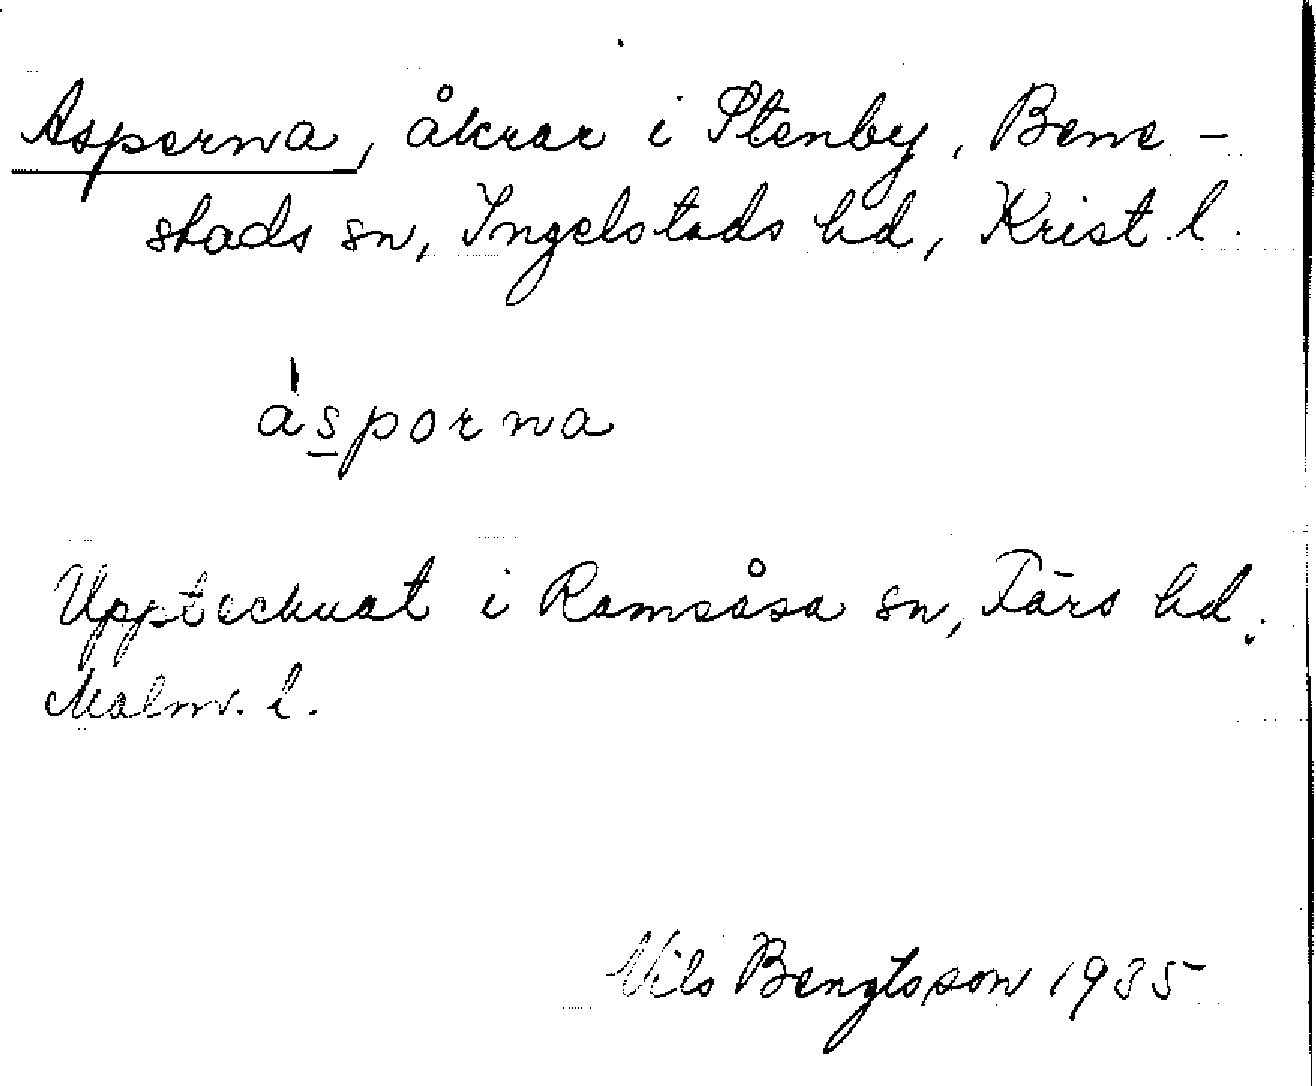 Asperna, åkrar i Stenby, Bene-
stads sn, Ingelstads hd, Krist l.
ásporna
Upptecknat i Ramsåsa sn, Färs hd,
Malm. l.
Nils Bengtsson 1935